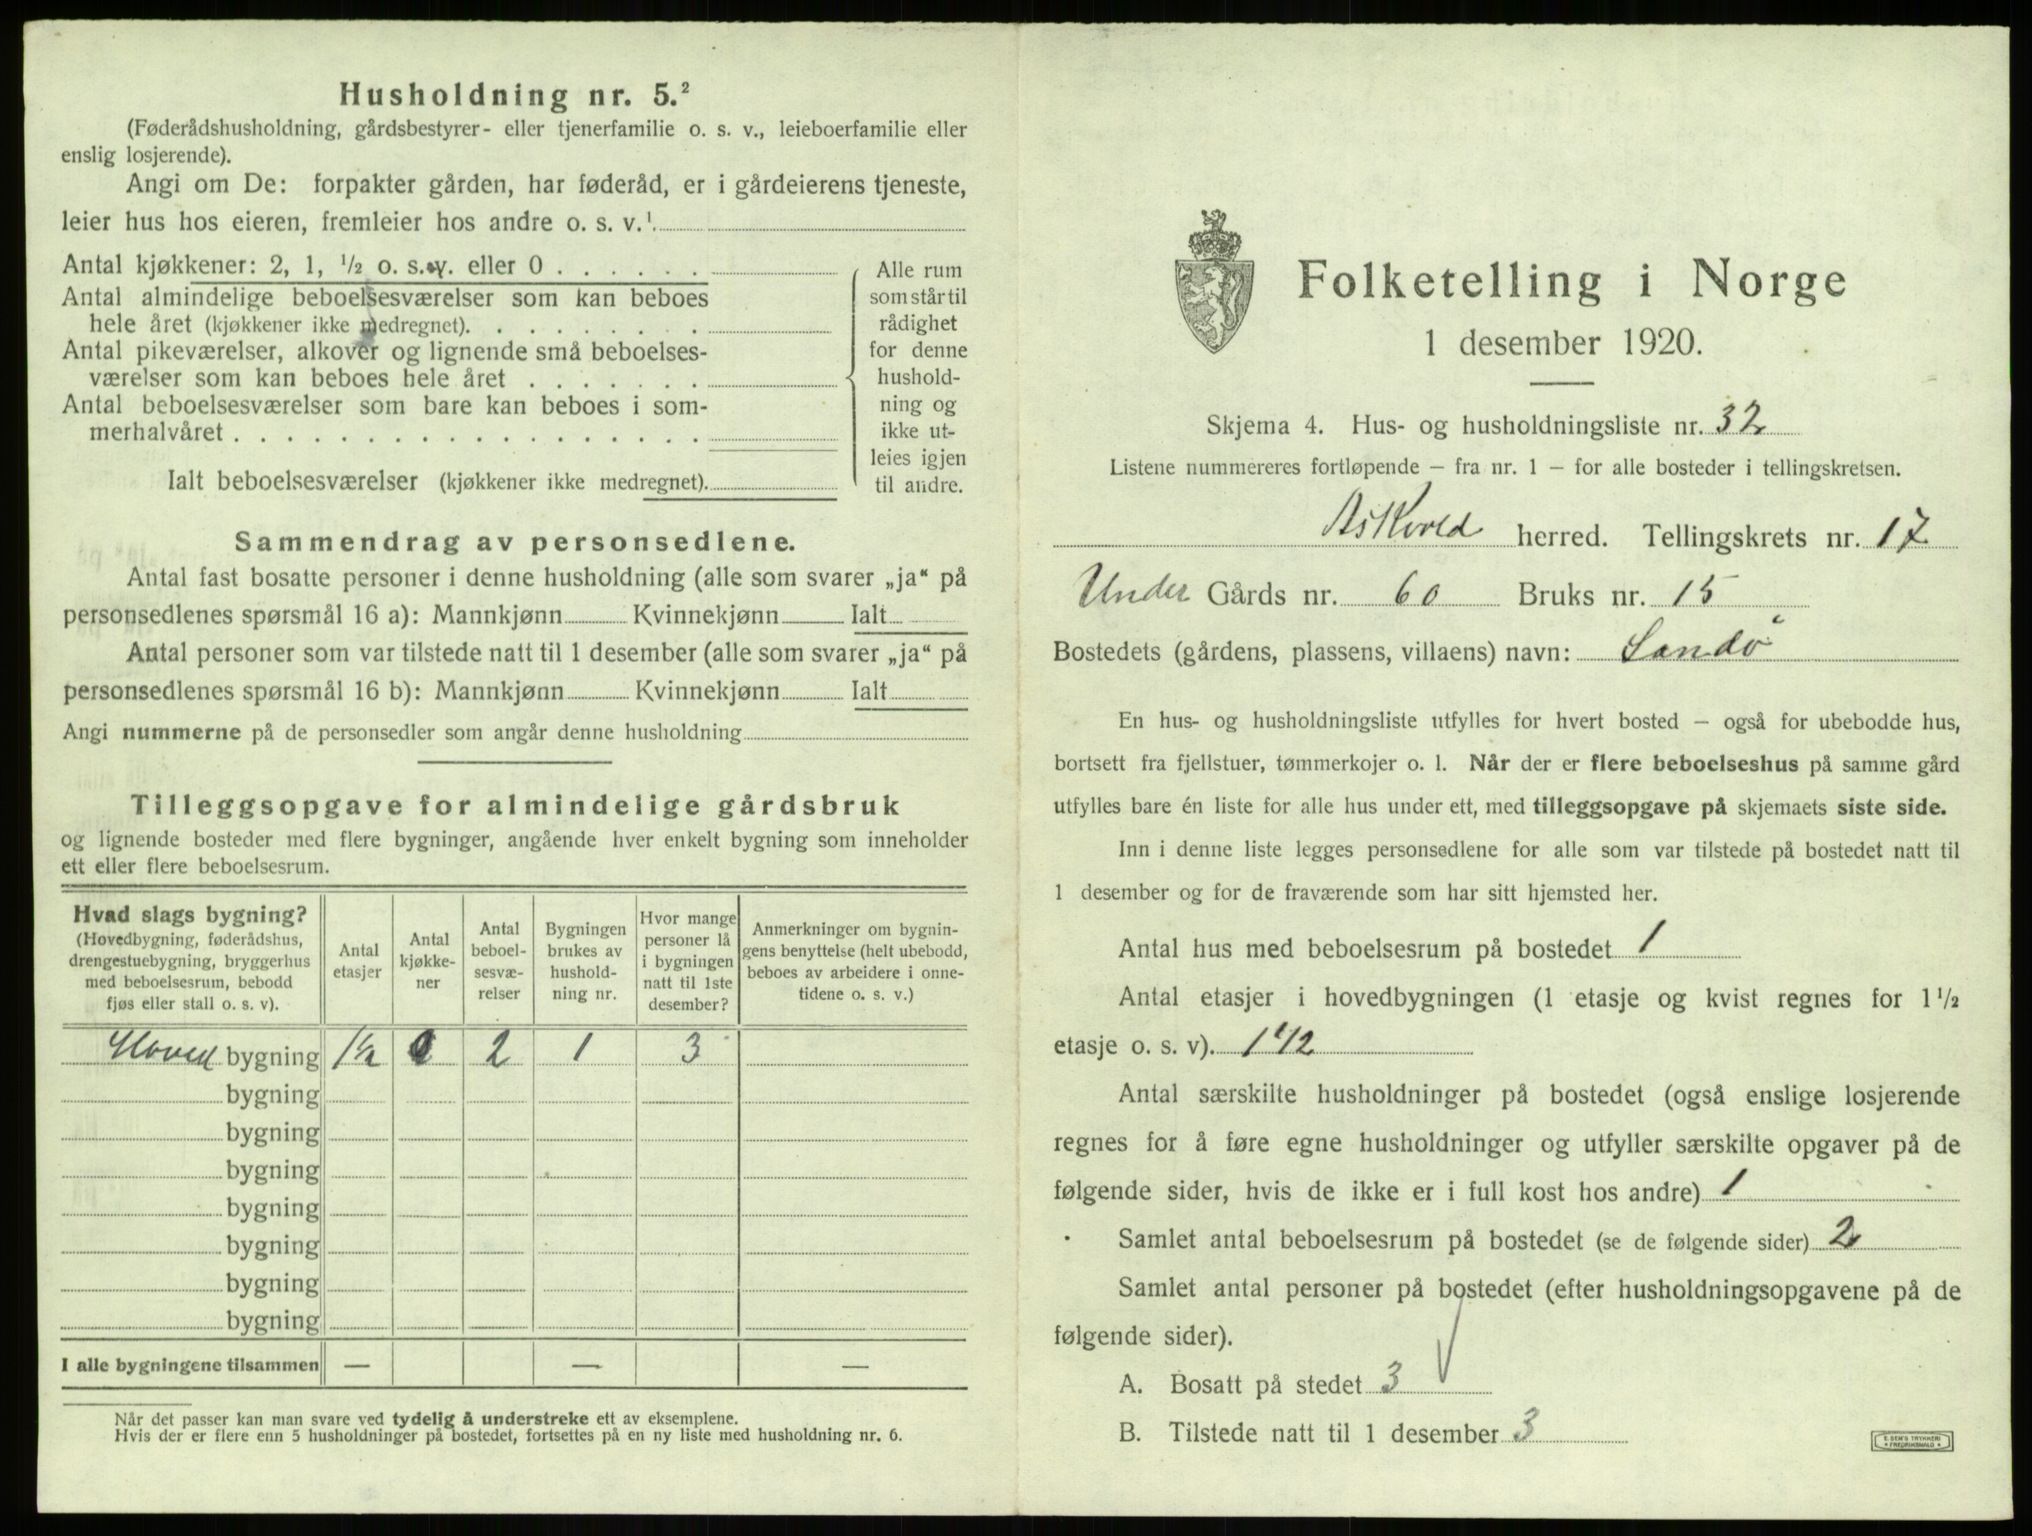 Husholdning nr. 5.²
(Føderådshusholdning, gårdsbestyrer- eller tjenerfamilie o. s. v., leieboerfamilie eller
enslig losjerende).
Angi om De: forpakter gården, har føderåd, er i gårdeierens tjeneste,
leier hus hos eieren, fremleier hos andre o. s. v.¹
Antal kjøkkener: 2, 1, ½ o. s. v. eller 0 . . . . . .
Antal almindelige beboelsesværelser som kan beboes
hele året (kjøkkener ikke medregnet). . . . . . . . .
Antal pikeværelser, alkover og lignende små beboelses-
værelser som kan beboes hele året . . . . . . .
Antal beboelsesværelser som bare kan beboes i som-
merhalvåret . . . . . . . . . . . . . . . . . .
Ialt beboelsesværelser (kjøkkener ikke medregnet).
Alle rum
som står til
rådighet
for denne
hushold-
ning og
ikke ut-
leies igjen
til andre.
Sammendrag av personsedlene.
Antal fast bosatte personer i denne husholdning (alle som svarer „ja“ på
personsedlenes spørsmål 16 a): Mannkjønn Kvinnekjønn Ialt
Antal personer som var tilstede natt til 1 desember (alle som svarer „ja“ på
personsedlenes spørsmål 16 b): Mannkjønn Kvinnekjønn Ialt
Angi nummerne på de personsedler som angår denne husholdning
Tilleggsopgave for almindelige gårdsbruk
og lignende bosteder med flere bygninger, angående hver enkelt bygning som inneholder
ett eller flere beboelsesrum.
Hvad slags bygning?
(Hovedbygning, føderådshus,
drengestuebygning, bryggerhus
med beboelsesrum, bebodd
fjøs eller stall o. s. v).
Antal
etasjer
Antal
kjøkke-
ner
Antal
beboel-
sesvæ-
relser
Bygningen
brukes av
hushold-
ning nr.
Hvor mange
personer lå
i bygningen
natt til 1ste
desember?
Anmerkninger om bygnin-
gens benyttelse (helt ubebodd,
beboes av arbeidere i onne-
tidene o. s. v.)
Hoved bygning 1½ 2 1 3
bygning
bygning
bygning
bygning
bygning
bygning
bygning
I alle bygningene tilsammen — — —
Når det passer kan man svare ved tydelig å understreke ett av eksemplene.
Hvis der er flere enn 5 husholdninger på bostedet, fortsettes på en ny liste med husholdning nr. 6.
Folketelling i Norge
1 desember 1920.
Skjema 4. Hus- og husholdningsliste nr. 32
Listene nummereres fortløpende – fra nr. 1 – for alle bosteder i tellingskretsen.
Askvold herred. Tellingskrets nr. 17
Under Gårds nr. 60 Bruks nr. 15
Bostedets (gårdens, plassens, villaens) navn: Sandö
En hus- og husholdningsliste utfylles for hvert bosted – også for ubebodde hus,
bortsett fra fjellstuer, tømmerkojer o. l. Når der er flere beboelseshus på samme gård
utfylles bare én liste for alle hus under ett, med tilleggsopgave på skjemaets siste side.
Inn i denne liste legges personsedlene for alle som var tilstede på bostedet natt til
1 desember og for de fraværende som har sitt hjemsted her.
Antal hus med beboelsesrum på bostedet 1
Antal etasjer i hovedbygningen (1 etasje og kvist regnes for 1½
etasje o. s. v). 1 1/2
Antal særskilte husholdninger på bostedet (også enslige losjerende
regnes for å føre egne husholdninger og utfyller særskilte opgaver på de
følgende sider, hvis de ikke er i full kost hos andre) 1
Samlet antal beboelsesrum på bostedet (se de følgende sider) 2
Samlet antal personer på bostedet (efter husholdningsopgavene på de
følgende sider).
A. Bosatt på stedet 3
B. Tilstede natt til 1 desember 3
E. SEM'S TRYKKERI
FREDRIKSHALD